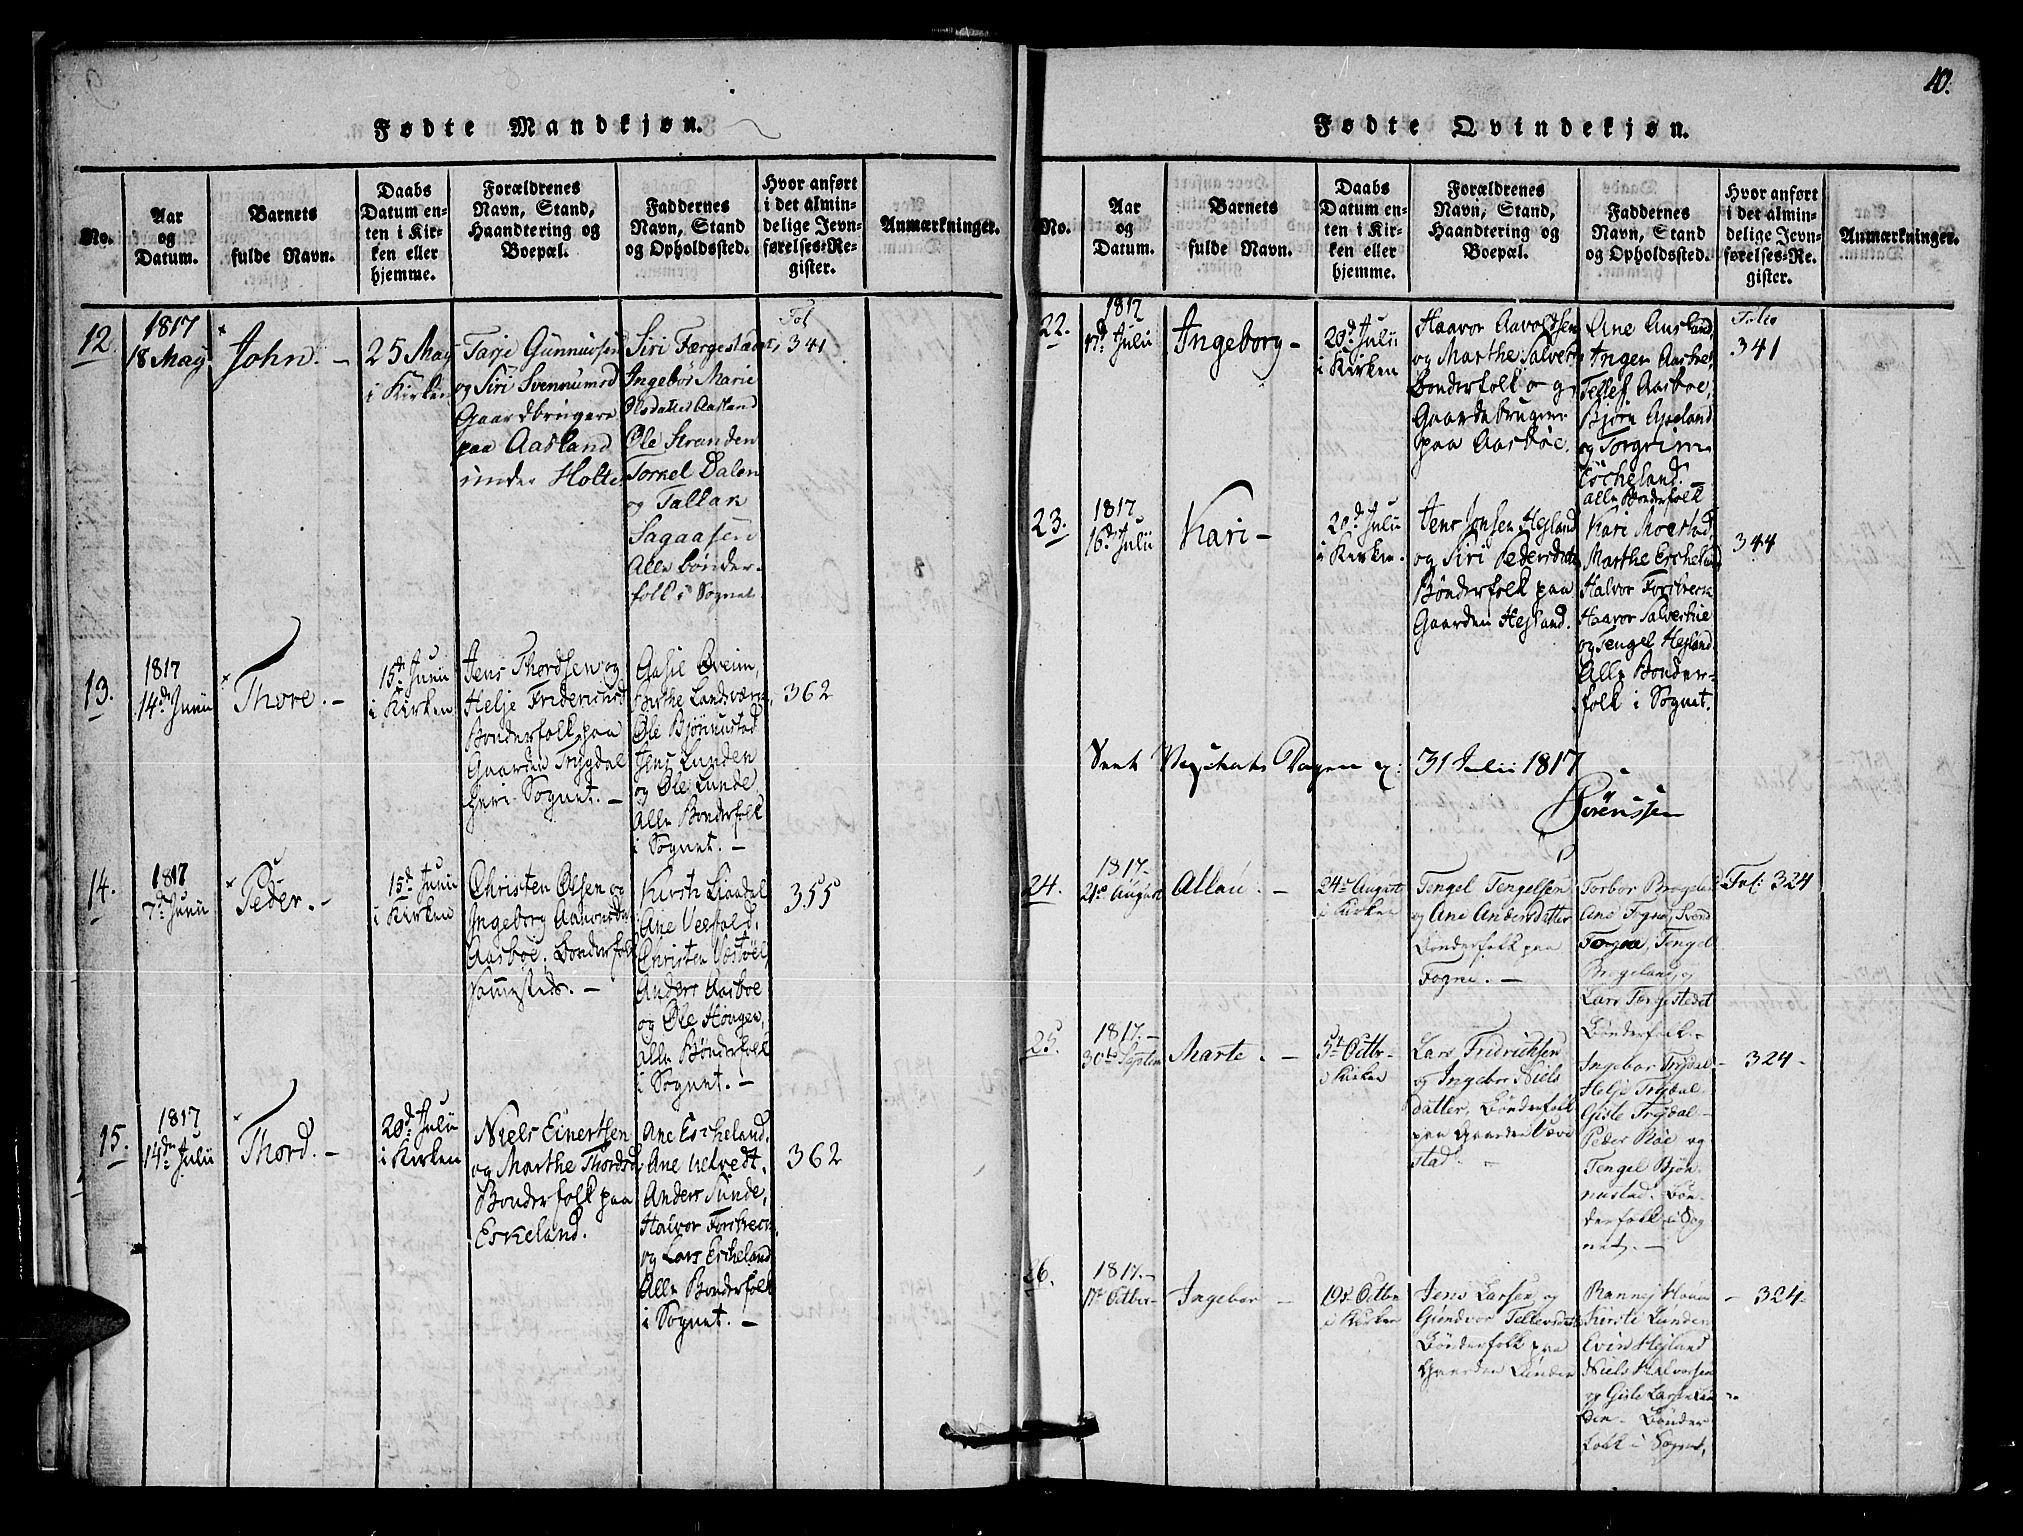 10.
Fødte Mandkjøn.
No.
Aar
og
Datum.
Barnets
fulde Navn.
Daabs
Datum en-
ten i Kir-
ken eller
hjemme.
Forældrenes
Navn, Stand,
Haandtering og
Boepæl.
Faddernes
Navn, Stand
og Opholdssted.
Hvor anført
i det almin-
delige Jevn-
førelses-Re-
gister.
Anmærkninger.
12.
1817
18 May
John. –
25 May
i Kirken
Tarje Gunnursen
og Siri Svennumsd
Gaardbrugere
paa Aasland
under Holte
Siri Færgestad
Ingebor Marie
Olsdatter Aasland
Ole Stranden
Torkel Dalen
og Tallak
Sagaasen
Alle bønder-
folk i Sognet
Fol
341
13.
1817
14de Junii
Thore. –
15de Junii
i Kirken
Jens Thordsen og
Helje Fridericusd
Bonderfolk paa
Gaarden Trydal
her i Sognet. –
Aasil Øveim,
Birthe Landværn,
Ole Bjønnustad
Jens Lunden
og Ole Lunde,
Alle Bonderfolk
i Sognet. –
362
14.
1817
7de Junii
Peder. –
15de Junii
i Kirken
Christen Olsen og
Ingeborg Aavonsd
Aasboe, Bonderfolk
sammesteds. –
Kirsti Liaadal
Ane Veefald,
Christen Vostøel,
Anders Aasboe
og Ole Hougen,
alle Bønderfolk
i Sognet. –
355
15.
1817
14de Julii
Thord. –
20de Julii
i Kirken
Niels Einertsen
og Marthe Thordsd
Bonderfolk paa
Eskeland.
Ane Escheland,
Ane Helvedt.
Anders Sunde,
Halvor Forstreen
og Lars Escheland
Alle Bonderfolk
i Sognet. –
362
Fødte Qvindekjøn.
No.
Aar
og
Datum.
Barnets
fulde Navn.
Daabs
Datum en-
ten i Kir-
ken eller
hjemme.
Forældrenes
Navn, Stand,
Haandtering og
Boepæl.
Faddernes
Navn, Stand
og Opholdssted.
Hvor anført
i det almin-
delige Jevn-
førelses-Re-
gister.
Anmærkninger.
22.
1817
17de Julii
Ingeborg –
20de Julii
i Kirken
Haavor Aavoldsen
og Marthe Salvers
Bonderfolk og
Gaardebrugere
paa Aasboe.
Ane Aasland,
Inger Aasbre
Tellef Aasboe,
Bjørn Apeland
og Torgrim
Escheland.
Alle Bonderfolk
Folio
341
23.
1817
16de Julii
Kari –
20de Julii
i Kirken.
Jens Jensen Hejland
og Siri Pedersdatter
Bønderfolk paa
Gaarden Hejland.
Kari Moestad,
Marthe Escheland
Halvor Forstreen
Haavor Salvestrie
og Tengel Hejland
Alle Bonder-
folk i Sognet.
344
Seet Visitats Dagen d: 31 Julii 1817
Sørenssen
24.
1817. –
21de August
Allau. –
24de August
i Kirken
Tengel Tengelsen
og Ane Andersdatter
Bønderfolk paa
Fogne. –
Torbor Brogeland
Ane Fogne, Svend
Fogne, Tengel
Brogeland, og
Lars Torgestedet
Bønderfolk. –
Fol: 324
25.
1817. –
30te Septem
Marte. –
5te Octbr
i Kirken
Lars Fridrichsen
og Ingebor Niels
datter, Bønderfolk
paa Gaarden Væve
stad. –
Ingebor Trydal
Helje Trydal
Gisle Trydal –
Peder Røe og
Tengel Bjøn-
nustad. Bøn-
derfolk i Sog
net. –
324 –
26.
1817. –
17de Octbr
Ingebor –
19de Octbr
i Kirken
Jens Larsen og
Gundvor Tellevsdatter
Bønderfolk paa
Gaarden Lunden
Rannej Houen
Kirste Lunden
Evin Hejland
Niels Halvorsen
og Gisle Larsen Lun
den – Bønder
folk i Sognet,
– 324 –